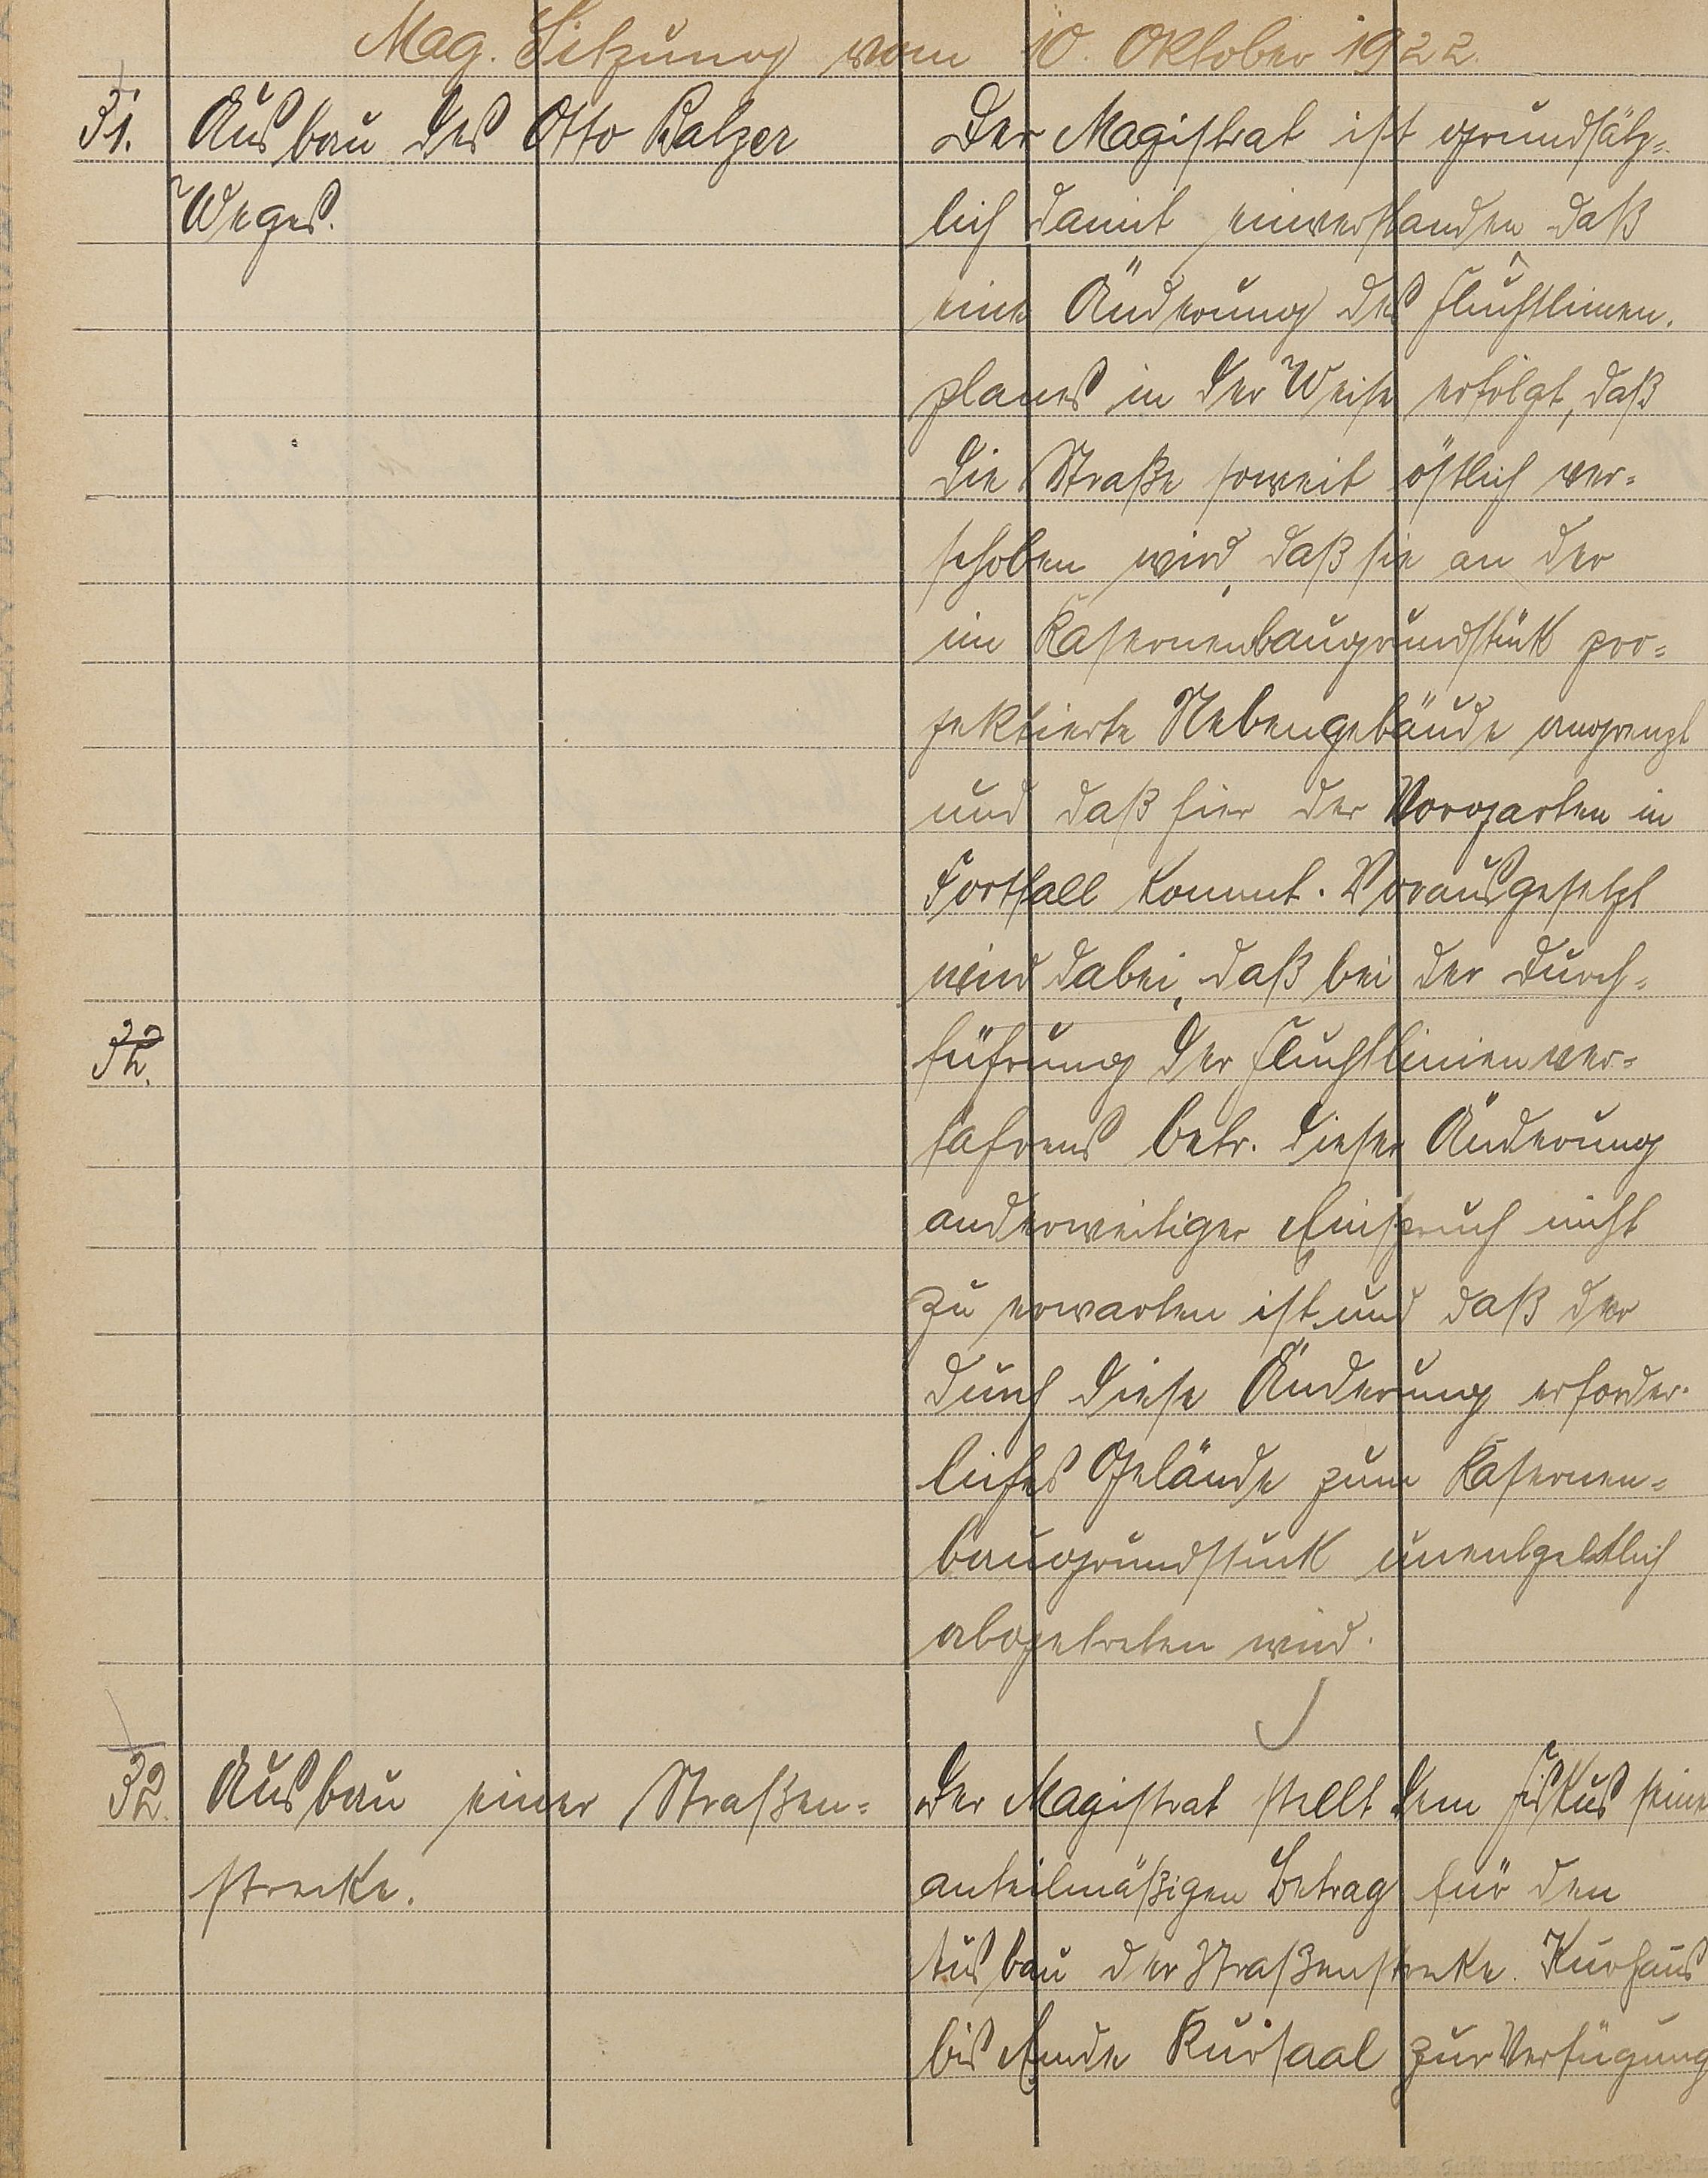 Mag. Sitzung vom 10. Oktober 1922.
31. Ausbau des Otto Balzer
Weges.
Der Magistrat ist grundsätz-
lich damit einverstanden, daß
eine Änderung des Fluchtlinien-
planes in der Weise erfolgt, daß
die Straße soweit östlich ver-
schoben wird, daß sie an der
im Kasernenbaugrundstück pro-
jektierte Nebengebäude angrenzt
und daß hier der Vorgarten in
Fortfall kommt. Vorausgesetzt
wird dabei, daß bei der Durch-
führung der Fluchtlinienver-
fahrens betr. dieser Änderung
anderweitiger Einspruch nicht
zu erwarten ist und daß der
durch diese Änderung erforder-
liches Gelände zum Kasernen-
baugrundstück unentgeltlich
abgetreten wird.
32.
32. Ausbau einer Straßen-
strecke.
Der Magistrat stellt dem Fiskus seinen
anteilmäßigen Betrag für den
Ausbau der Straßenstrecke. Kurhaus
bis Ende Kursaal zur Verfügung